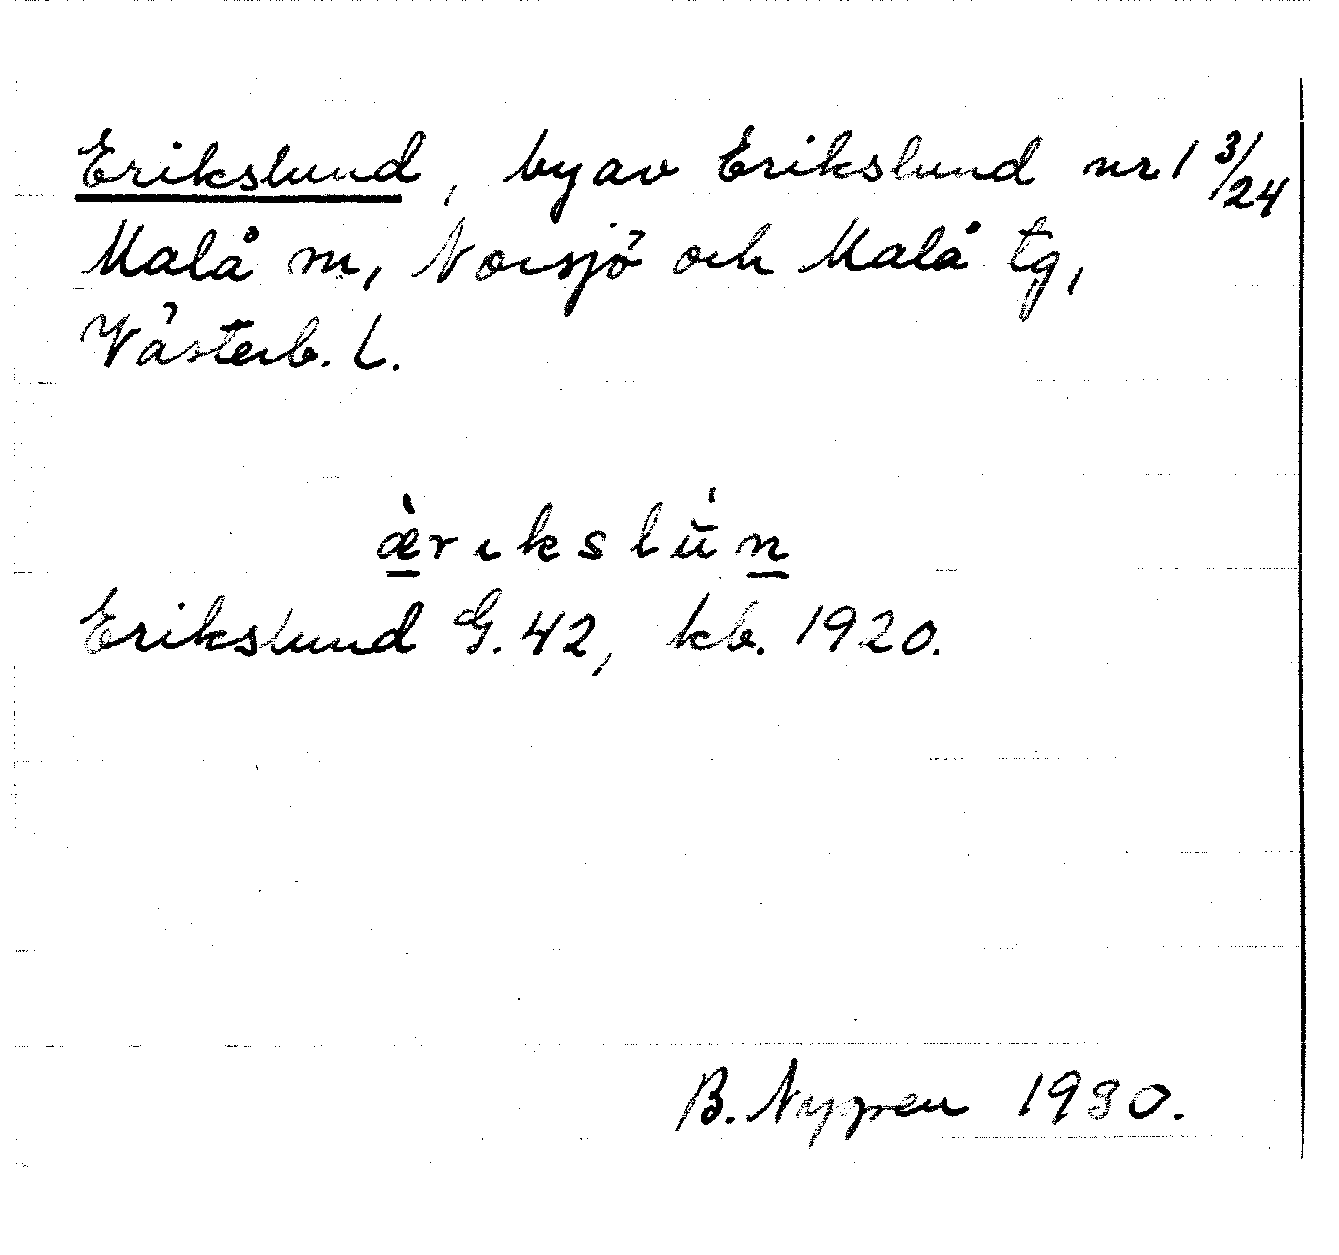 Erikslund, by av Erikslund nr 1 3/24
Malå m, Norsjö och Malå tg,
Västerb. l.
æ̀rıkslú̄n
Erikslund G. 42, kb. 1920.
B. Nygren 1930.